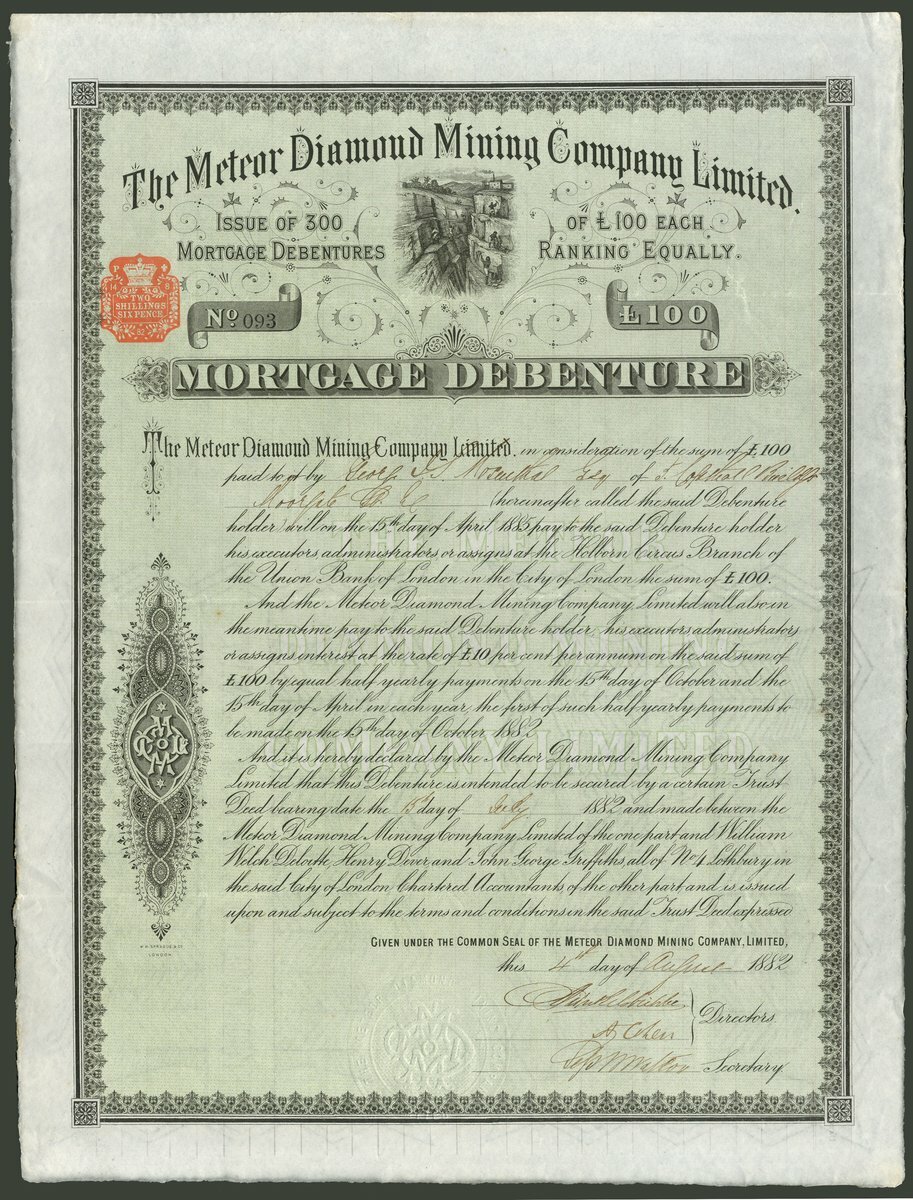 The Meteor Diamond Mining Company Limited.
Issue of 300 Mortgage Debentures
of £100 each Ranking Equally.
P
14 C 8
TWO SHILLINGS SIXPENCE
82
No 093
£100
MORTGAGE DEBENTURE
The Meteor Diamond Mining Company Limited. in consideration of the sum of £100
paid to it by Esq of
(hereinafter called the said Debenture
holder) will on the 15th day of April 1885 pay to the said Debenture holder
his executors, administrators or assigns at the Holborn Circus Branch of
the Union Bank of London in the City of London the sum of £100.
And the Meteor Diamond Mining Company Limited will also in
the meantime pay to the said Debenture holder, his executors administrators
or assigns interest at the rate of £10 per cent per annum on the said sum of
£100 by equal half yearly payments on the 15th day of October and the
15th day of April in each year, the first of such half yearly payments to
be made on the 15th day of October 1882
And it is hereby declared by the Meteor Diamond Mining Company
Limited that this Debenture is intended to be secured by a certain Trust
Deed bearing date the day of July 1882 and made between the
Meteor Diamond Mining Company Limited of the one part and William
Welch Deloitte, Henry Dever, and John George Griffiths, all of No 4 Lothbury in
the said City of London Chartered Accountants of the other part and is issued
upon and subject to the terms and conditions in the said Trust Deed expressed
THE METEOR
COMPANY LIMITED
W.W. SPRAGUE & CO
LONDON
Given under the Common Seal of the Meteor Diamond Mining Company, Limited,
this 4th day of August 1882
Directors.
Secretary